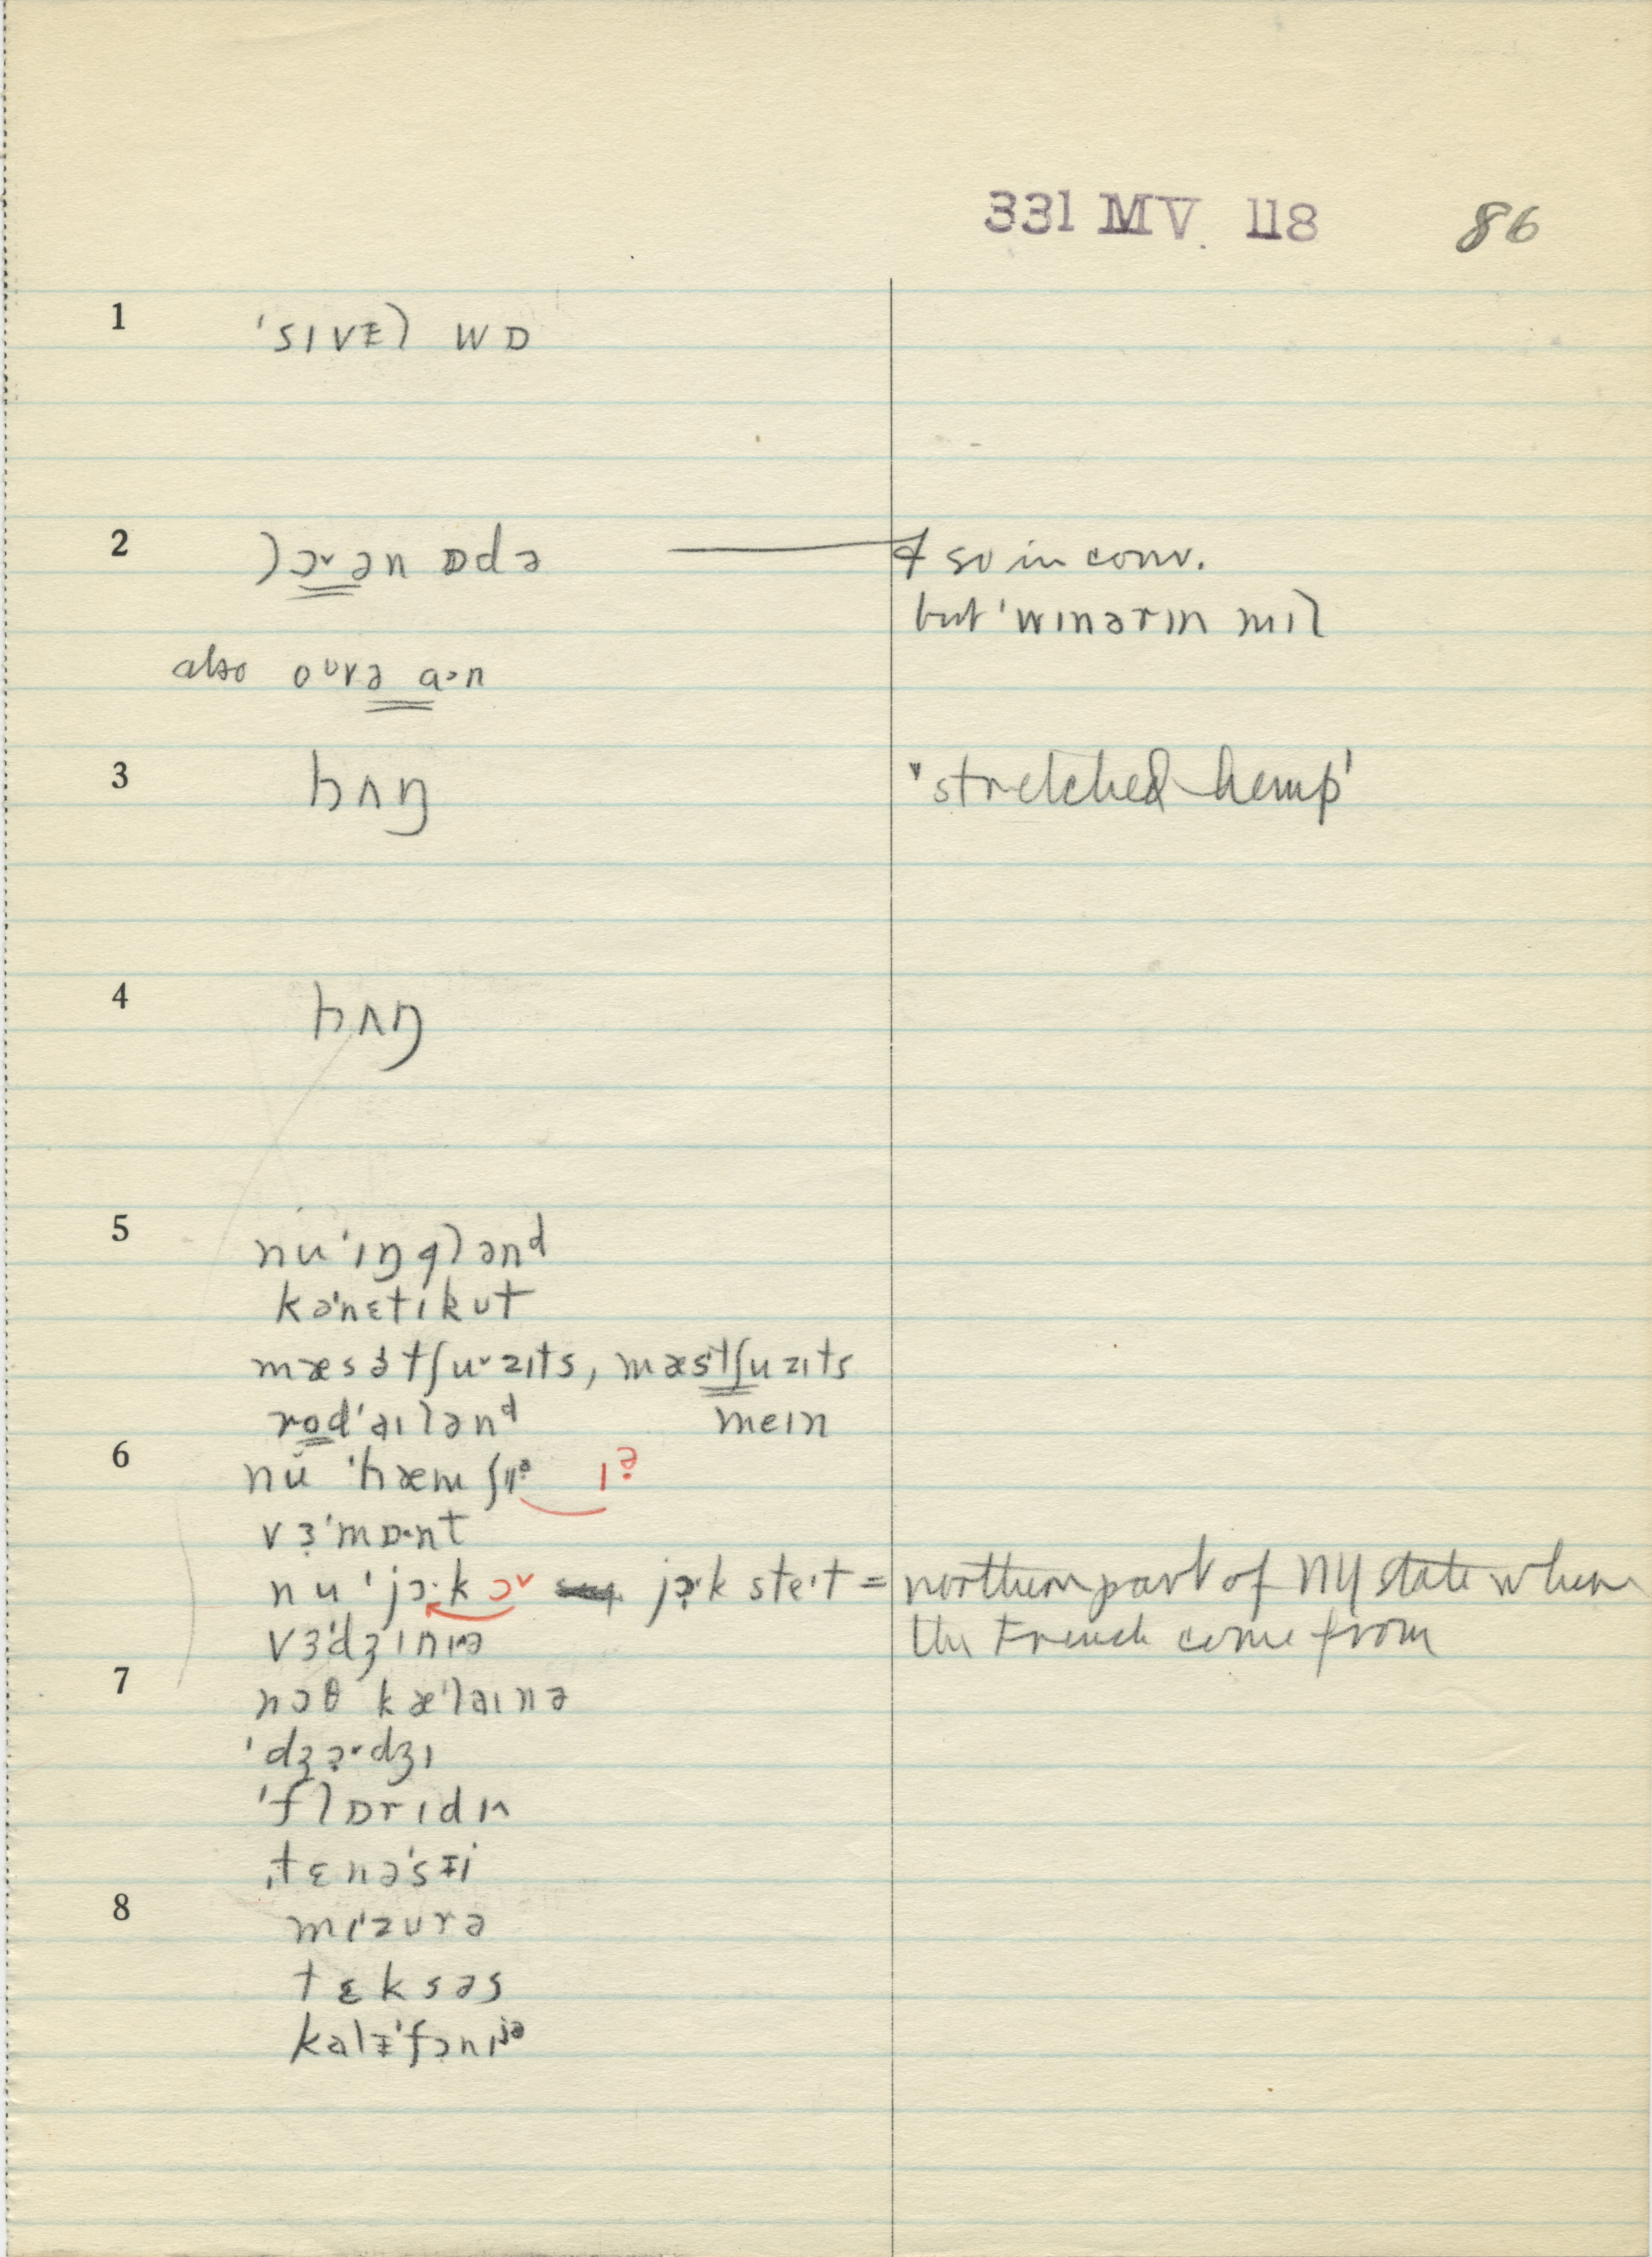 331 MV. 118 86
1 'sɪvɫ wɒ
2 lɔ˅ ən ɒdə —— ɬ so in conv.
but 'wɪnərɪn mɪl
also oᴜrə a·n
3 hʌŋ 'stretched hemp'
4 hʌŋ
5 nu'ɪŋglənᵈ
kə'nɛtɪkʊt
mæsətʃu˅zɪts, mæstʃuzɪts
rod'aɪlənᵈ meɪn
6 nu 'hæmʃɪə ɪə
vɜ'mɒ·nt
nu 'jɔ·k ɔ˅ jɔ·k ste·t = northern part of NY state where
vɜ'dʒɪnɪə the French come from
7 nɔθ kæ'laɪnə
'dʒɔ˅dʒɪ
'flɒrɪdɪ^
ˌtɛnə'sɪi
8 mɪ'zʊrə
tɛksəs
kalɨ'fɔnɪʲᵊ